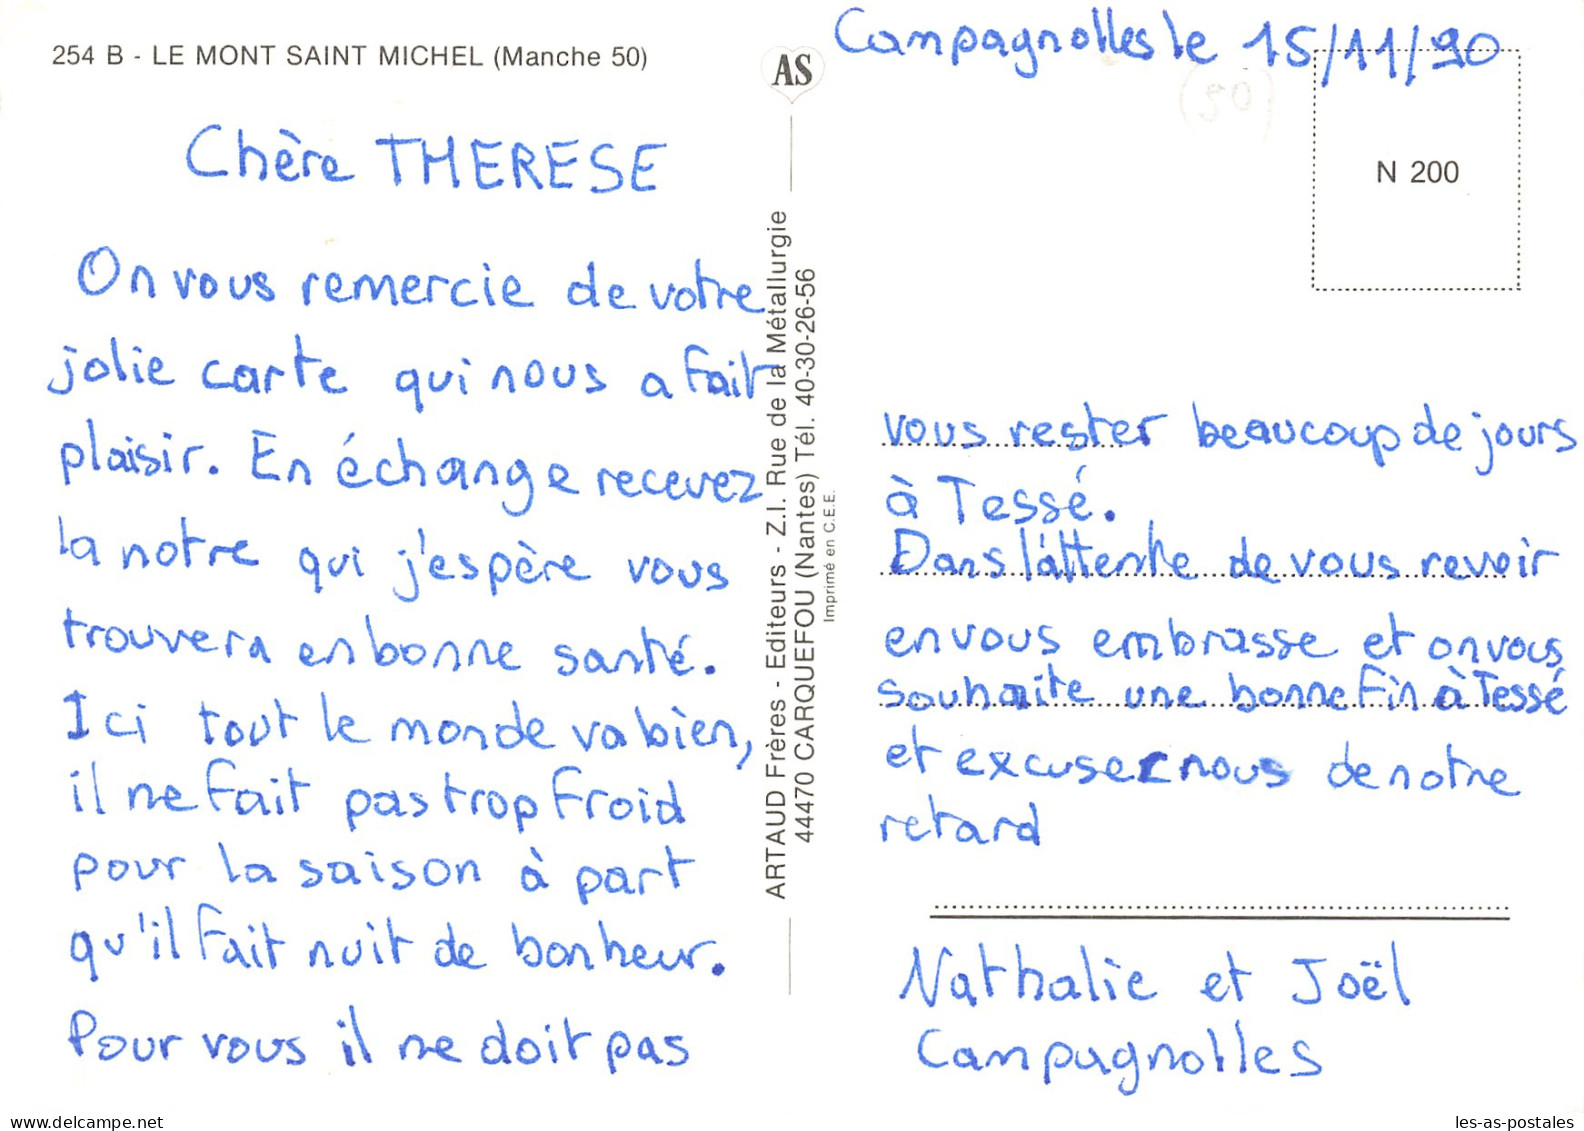 254 B - LE MONT SAINT MICHEL (Manche 50)
AS
Campagnolles le 15/11/90
(90)
N 200
Chère THERESE
On vous remercie de votre
jolie carte qui nous a fait
plaisir. En échange recevez
la notre qui j'espère vous
trouvera en bonne santé.
Ici tout le monde va bien,
il ne fait pas trop froid
pour la saison à part
qu'il fait nuit de bonheur.
Pour vous il ne doit pas
ARTAUD Frères - Editeurs - Z.I. Rue de la Métallurgie
44470 CARQUEFOU (Nantes) Tél. 40-30-26-56
Imprimé en C.E.E.
vous rester beaucoup de jours
à Tessé.
Dans l'attente de vous revoir
en vous embrasse et on vous
souhaite une bonne fin à Tessé
et excuser nous de notre
retard
Nathalie et Joël
Campagnolles
delcampe.net
les-as-postales